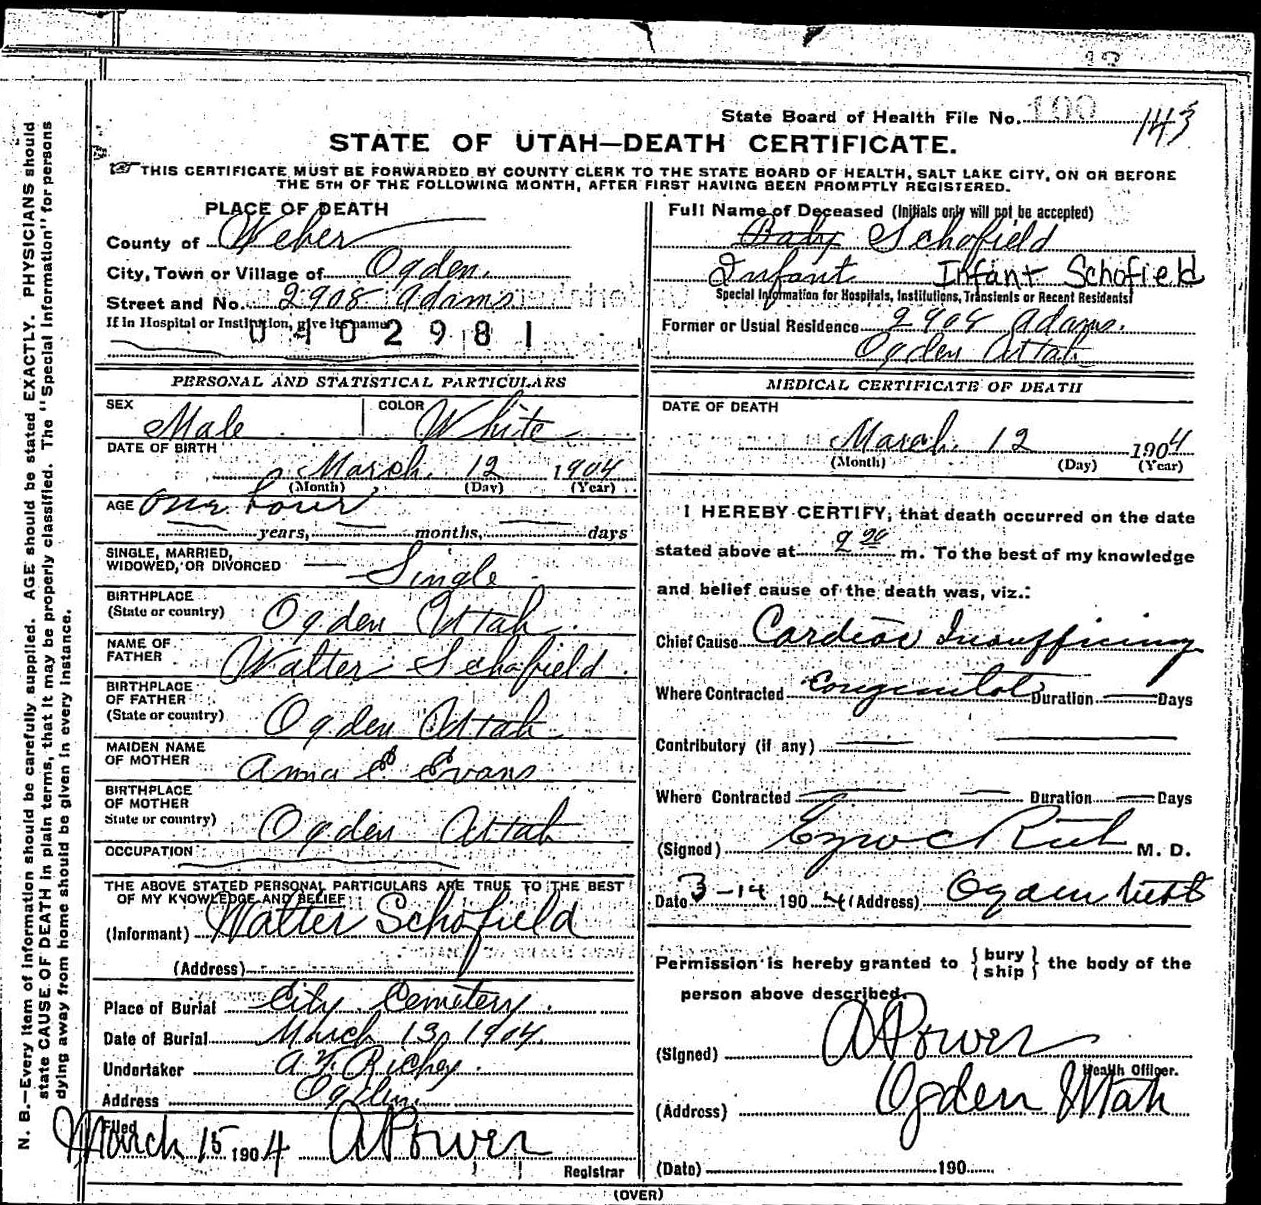 State Board of Health File No. 100 143
STATE OF UTAH—DEATH CERTIFICATE.
THIS CERTIFICATE MUST BE FORWARDED BY COUNTY CLERK TO THE STATE BOARD OF HEALTH, SALT LAKE CITY, ON OR BEFORE
THE 5TH OF THE FOLLOWING MONTH, AFTER FIRST HAVING BEEN PROMPTLY REGISTERED.
N. B.—Every item of information should be carefully supplied. AGE should be stated EXACTLY. PHYSICIANS should
state CAUSE OF DEATH in plain terms, that it may be properly classified. The "Special Information" for persons
dying away from home should be given in every instance.
PLACE OF DEATH
County of Weber
City, Town or Village of Ogden.
Street and No. 2908 Adams
If in Hospital or Institution, give its name
0402981
PERSONAL AND STATISTICAL PARTICULARS
SEX Male COLOR White
DATE OF BIRTH
March 12 1904
(Month) (Day) (Year)
AGE One hour
years, months, days
SINGLE, MARRIED,
WIDOWED, OR DIVORCED Single
BIRTHPLACE
(State or country) Ogden Utah
NAME OF
FATHER Walter Schofield
BIRTHPLACE
OF FATHER
(State or country) Ogden Utah
MAIDEN NAME
OF MOTHER Anna E Evans
BIRTHPLACE
OF MOTHER
State or country) Ogden Utah
OCCUPATION
THE ABOVE STATED PERSONAL PARTICULARS ARE TRUE TO THE BEST
OF MY KNOWLEDGE AND BELIEF
(Informant) Walter Schofield
(Address)
Place of Burial City Cemetery.
Date of Burial March 13, 1904.
Undertaker A. F. Richey.
Address Ogden
Filed
March 15 1904 A Power
Registrar
Full Name of Deceased (Initials only will not be accepted)
Baby Schofield
Infant Infant Schofield
Special Information for Hospitals, Institutions, Transients or Recent Residents
Former or Usual Residence 2908 Adams.
Ogden Utah
MEDICAL CERTIFICATE OF DEATH
DATE OF DEATH
March 12 1904
(Month) (Day) (Year)
I HEREBY CERTIFY, that death occurred on the date
stated above at m. To the best of my knowledge
and belief cause of the death was, viz.:
Chief Cause Cardiac Insufficiency
Where Contracted congenital Duration Days
Contributory (if any)
Where Contracted Duration Days
(Signed) Ezra C Rich M. D.
Date 3-14 1904 (Address) Ogden Utah
Permission is hereby granted to { bury ship } the body of the
person above described.
(Signed) A Power
Health Officer.
(Address) Ogden Utah
(Date) 190
(OVER)